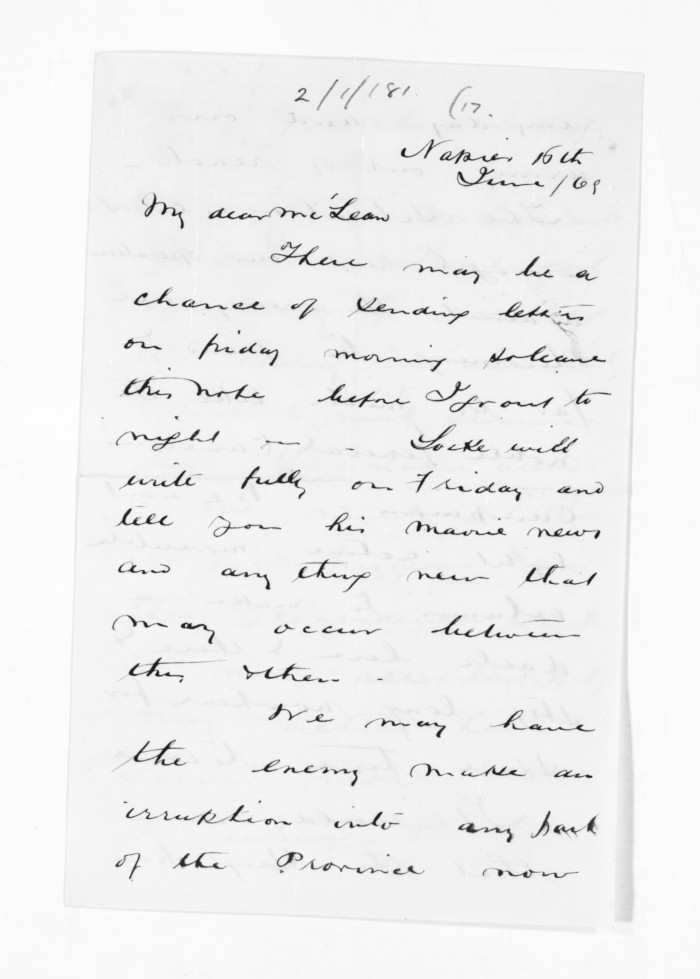 2/1/181 (17.
Napier 16th
June/69
My dear McLean
There may be a
chance of sending letters
on friday morning so leave
this note before I go out to
night — Locke will
write fully on Friday and
tell you his maorie news
and any thing new that
may occur between
this & then.
We may have
the enemy make an
irruption into any part
of the Province now